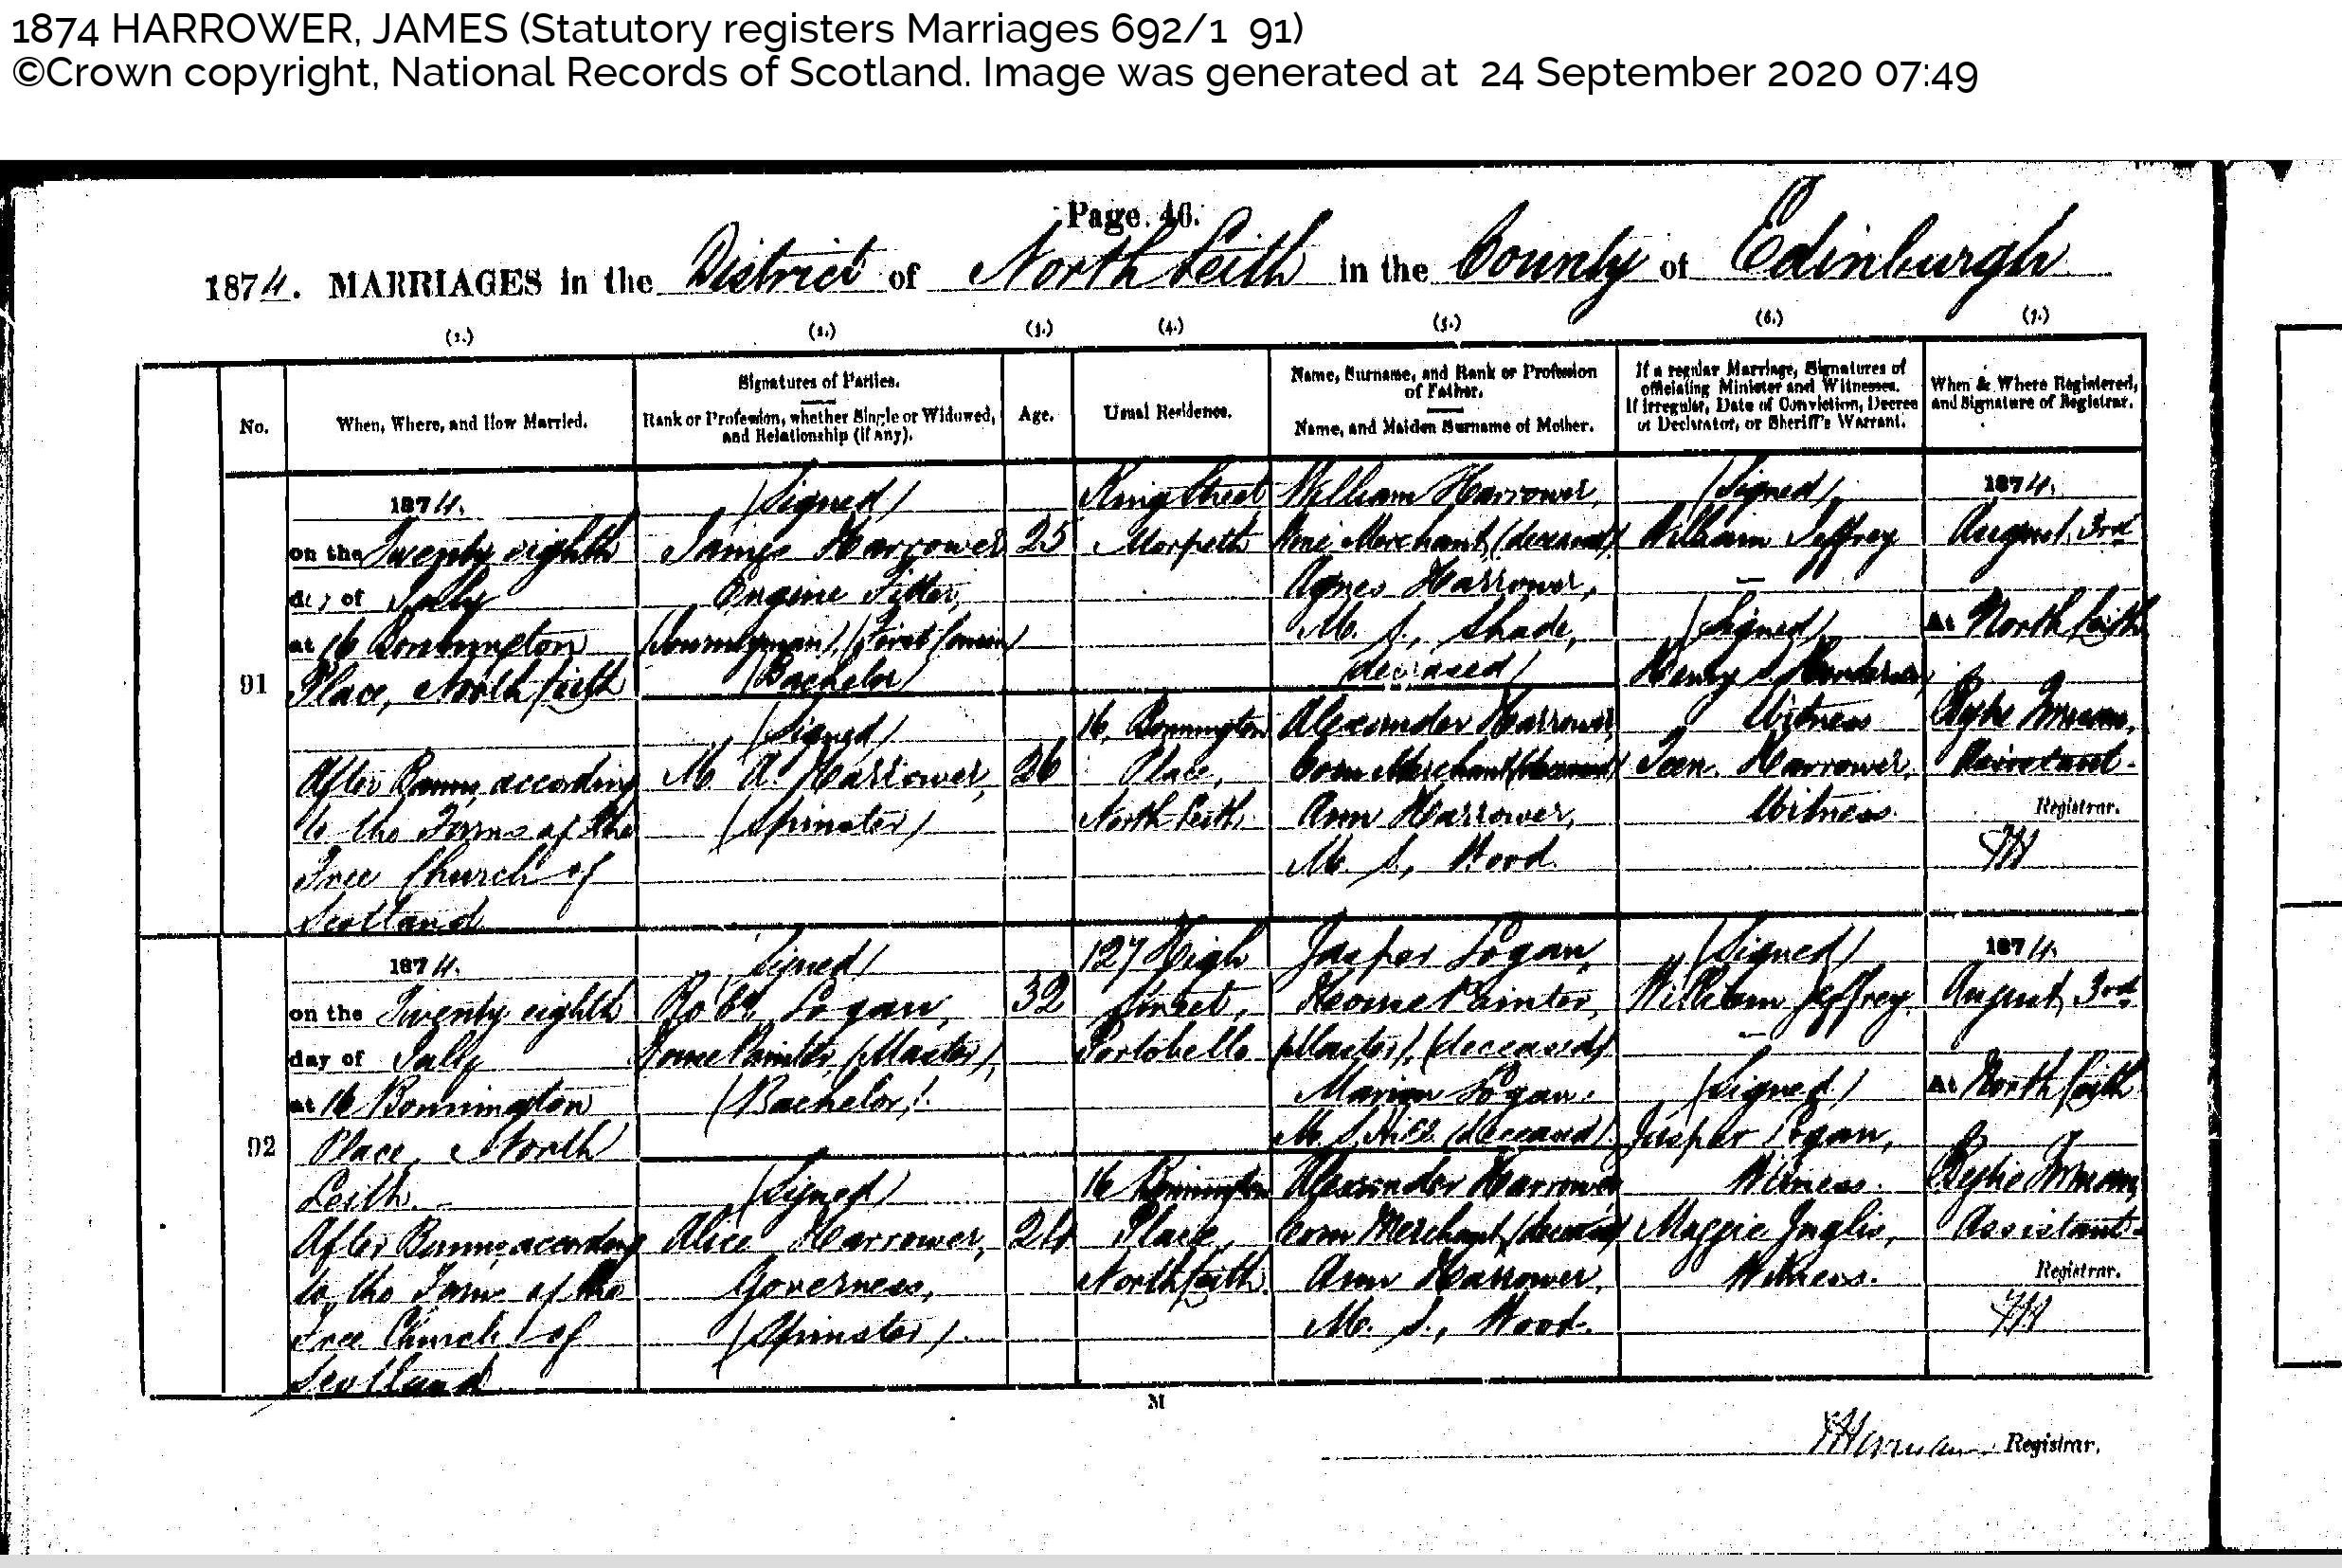 1874 HARROWER, JAMES (Statutory registers Marriages 692/1 91)
©Crown copyright, National Records of Scotland. Image was generated at 24 September 2020 07:49
Page. 46.
1874. MARRIAGES in the District of North Leith in the County of Edinburgh
(1.) (2.) (3.) (4.) (5.) (6.) (7.)
No.
When, Where, and How Married.
Signatures of Parties.
Rank or Profession, whether Single or Widowed,
and Relationship (if any).
Age.
Usual Residence.
Name, Surname, and Rank or Profession
of Father.
Name, and Maiden Surname of Mother.
If a regular Marriage, Signatures of
officiating Minister and Witnesses.
If irregular, Date of Conviction, Decree
of Declarator, or Sheriff's Warrant.
When & Where Registered,
and Signature of Registrar.
91
1874.
on the Twenty eighth
day of July
at 16 Bonnington
Place, North Leith
After Banns, according
to the Forms of the
Free Church of
Scotland
(Signed)
James Harrower
Engine Fitter,
(Journeyman), (First Cousin)
(Bachelor)
(Signed)
M. A. Harrower,
(Spinster)
25
26
King Street
Morpeth
16, Bonnington
Place,
North Leith.
William Harrower,
Merchant, (deceased)
Agnes Harrower,
M. S., Shade,
(deceased)
Alexander Harrower,
Corn Merchant (deceased)
Ann Harrower,
M. S., Wood.
(Signed)
William Jeffrey
(Signed)
Henry S. Henderson,
Witness
Jean Harrower,
Witness.
1874.
August, 3rd
At North Leith
Forman,
Assistant.
Registrar.
92
1874.
on the Twenty eighth
day of July
at 16 Bonnington
Place, North
Leith.
After Banns, according
to the Forms of the
Free Church of
Scotland
(Signed)
Robt. Logan,
House Painter, (Master),
(Bachelor).
(Signed)
Alice Harrower,
Governess,
(Spinster).
32
24
127 High
Street,
Portobello
16 Bonnington
Place,
North Leith.
Jasper Logan,
House Painter,
(Master), (deceased)
Marion Logan.
M. S. (deceased).
Alexander Harrower,
Corn Merchant, (deceased)
Ann Harrower,
M. S., Wood.
(Signed)
William Jeffrey.
(Signed)
Jasper Logan,
Witness.
Maggie Inglis,
Witness.
1874.
August, 3rd
At North Leith
Forman,
Assistant
Registrar.
M
Forman. Registrar.